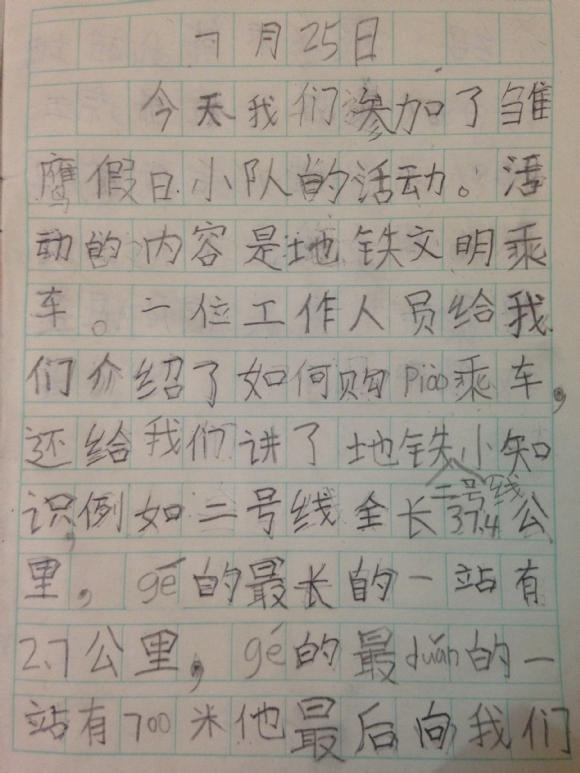 7月25日
今天我们参加了雏
鹰假日小队的活动。活
动的内容是地铁文明乘
车。一位工作人员给我
们介绍了如何购piào乘车,
还给我们讲了地铁小知
二号线
识,例如二号线全长37.4公
里,gé的最长的一站有
2.7公里,gé的最duǎn的一
站有700米他最后向我们